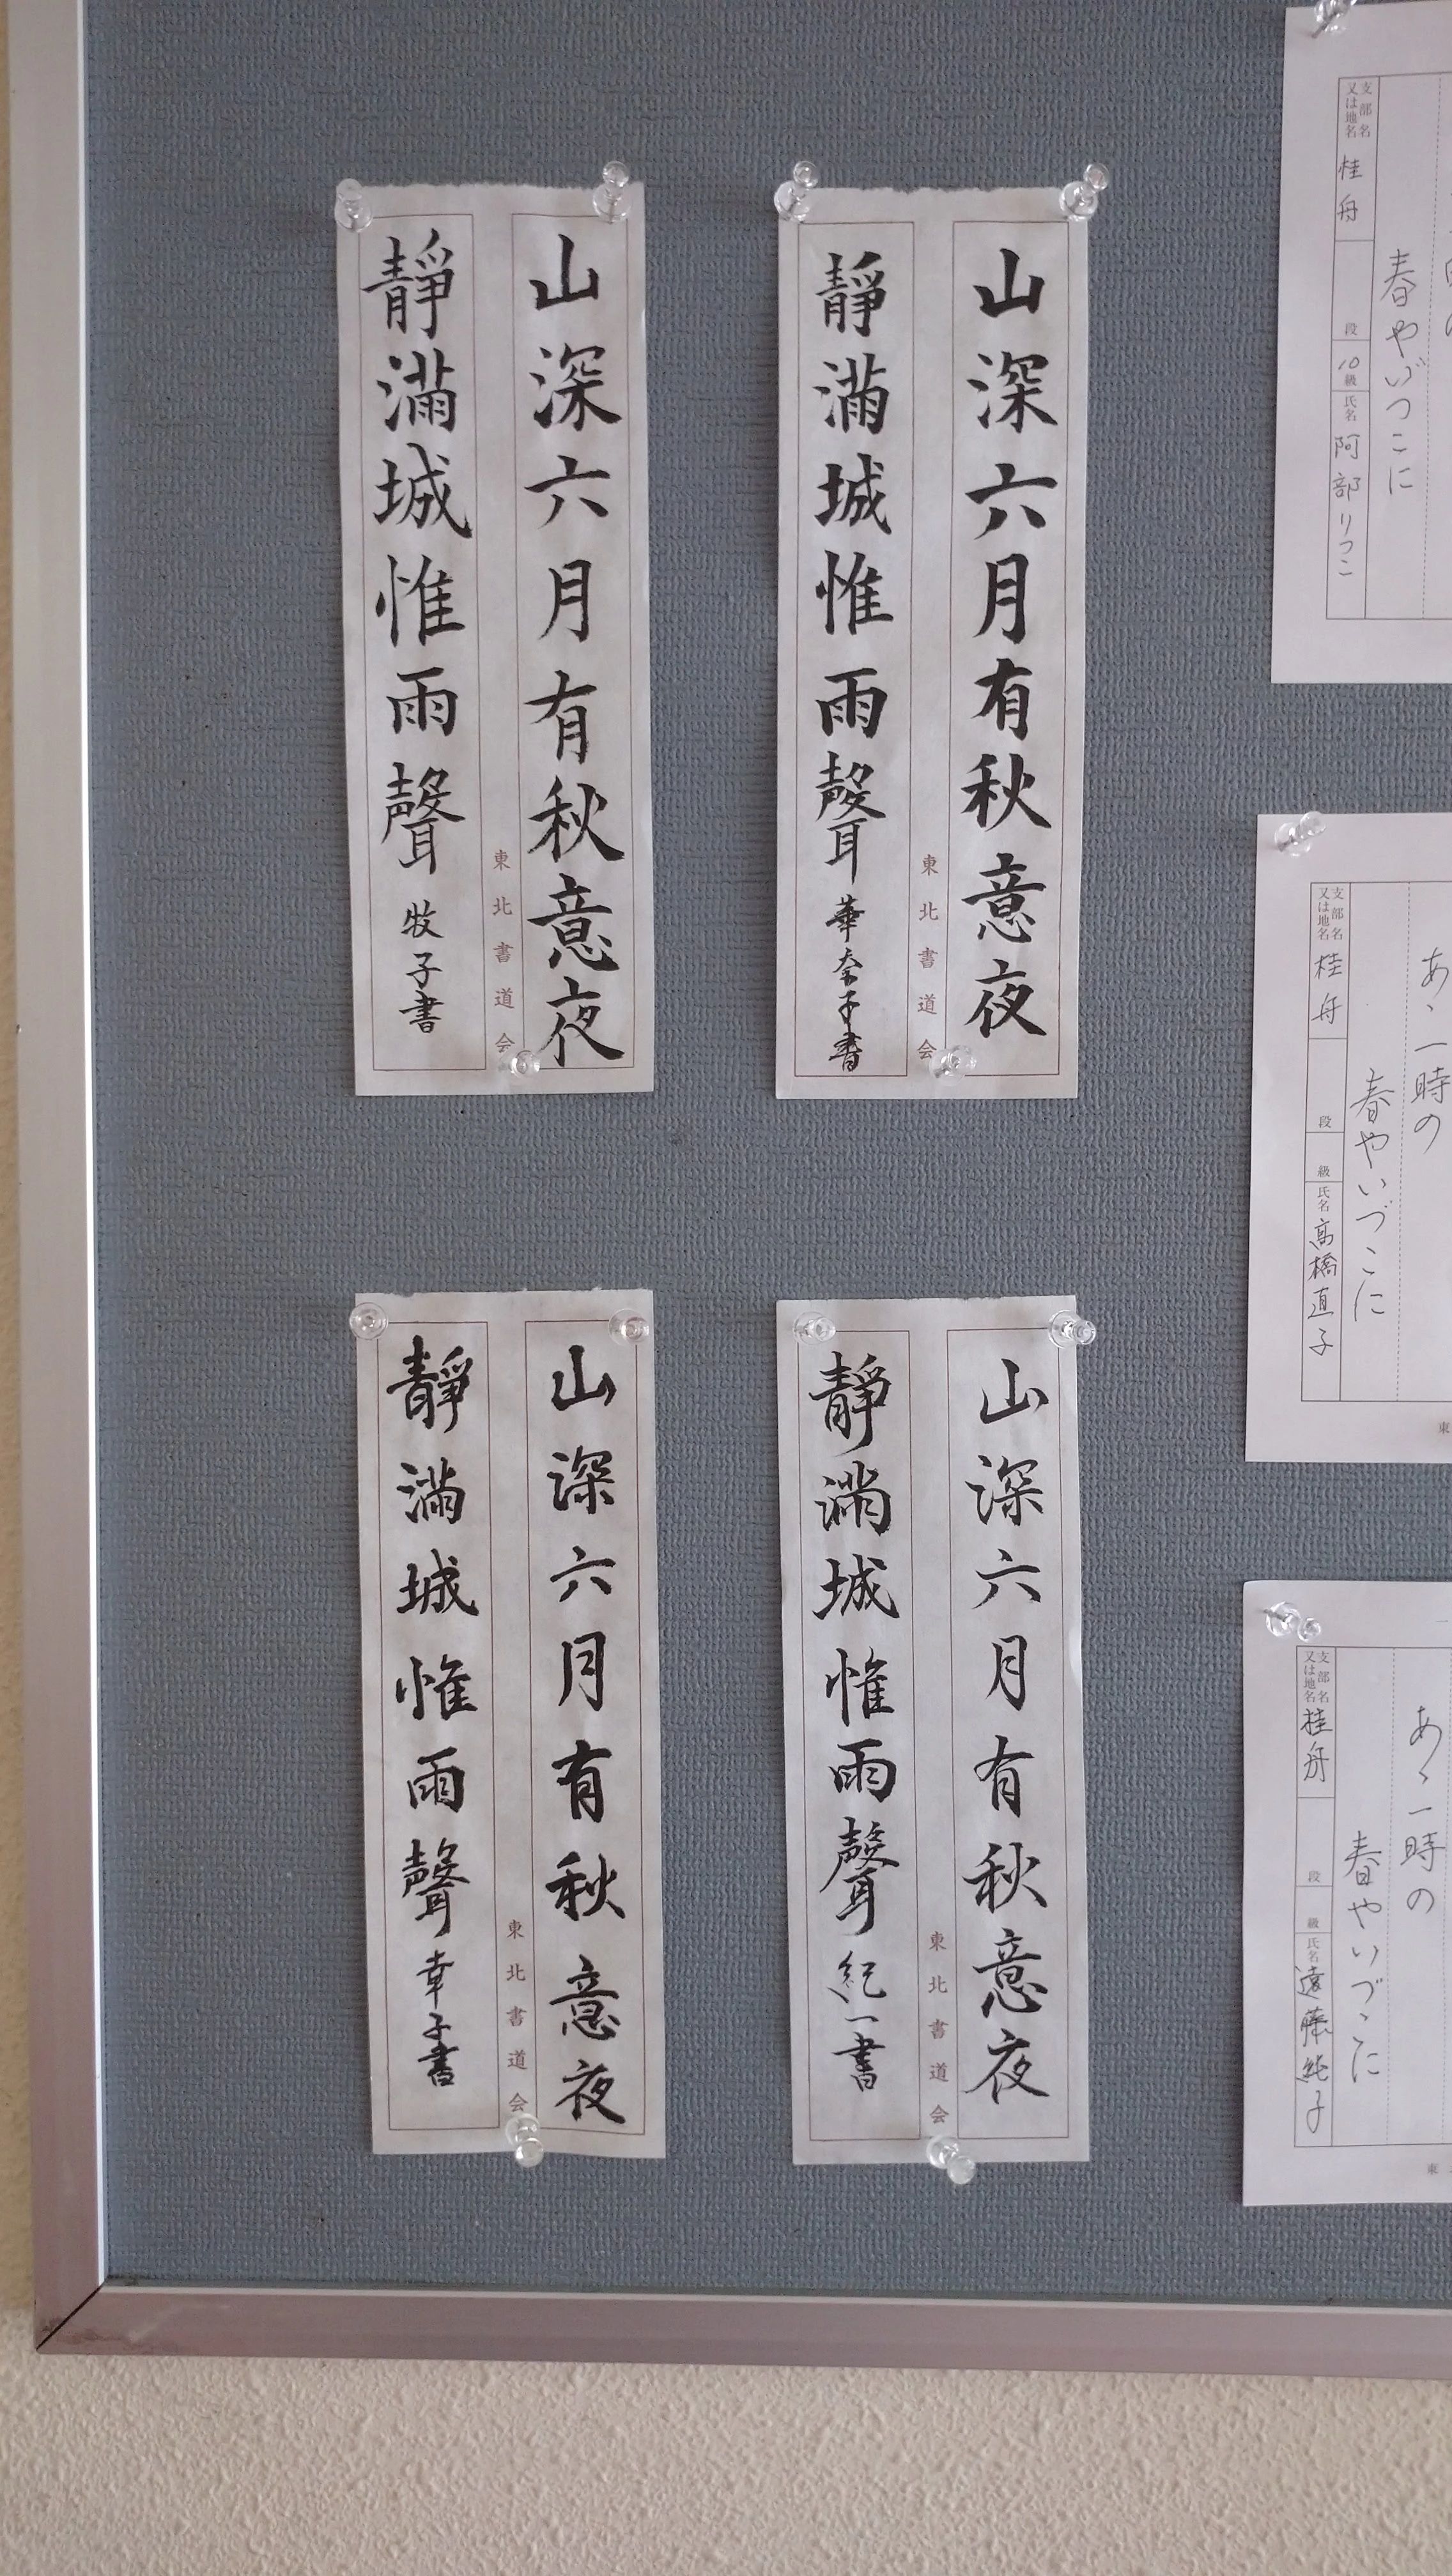 山深六月有秋意夜
靜滿城惟雨聲 牧子書
東北書道会
山深六月有秋意夜
靜滿城惟雨聲 華奈子書
東北書道会
山深六月有秋意夜
靜滿城惟雨聲 幸子書
東北書道会
山深六月有秋意夜
靜滿城惟雨聲 紀一書
東北書道会
春やいづこに
支部名又は地名 桂舟 段 10級 氏名 阿部りつこ
あゝ一時の
春やいづこに
支部名又は地名 桂舟 段 級 氏名 高橋直子
東
あゝ一時の
春やいづこに
支部名又は地名 桂舟 段 級 氏名 遠藤純子
東